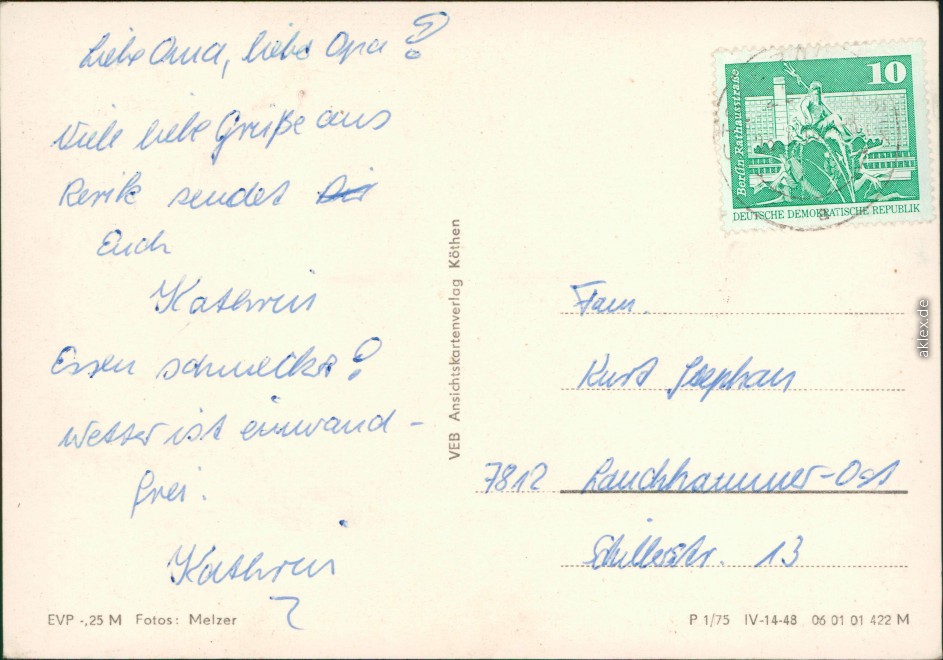 Liebe Oma, liebe Opa!
Viele liebe Grüße aus
Rerik sendet
Euch
Kathrin
Essen schmeckt!
Wetter ist einwand-
frei.
Kathrin
EVP -,25 M Fotos: Melzer
VEB Ansichtskartenverlag Köthen
10
Berlin, Rathausstraße
DEUTSCHE DEMOKRATISCHE REPUBLIK
Fam.
Kurt
7812 Lauchhammer-Ost
Schillerstr. 13
P 1/75 IV-14-48 06 01 01 422 M
aklex.de